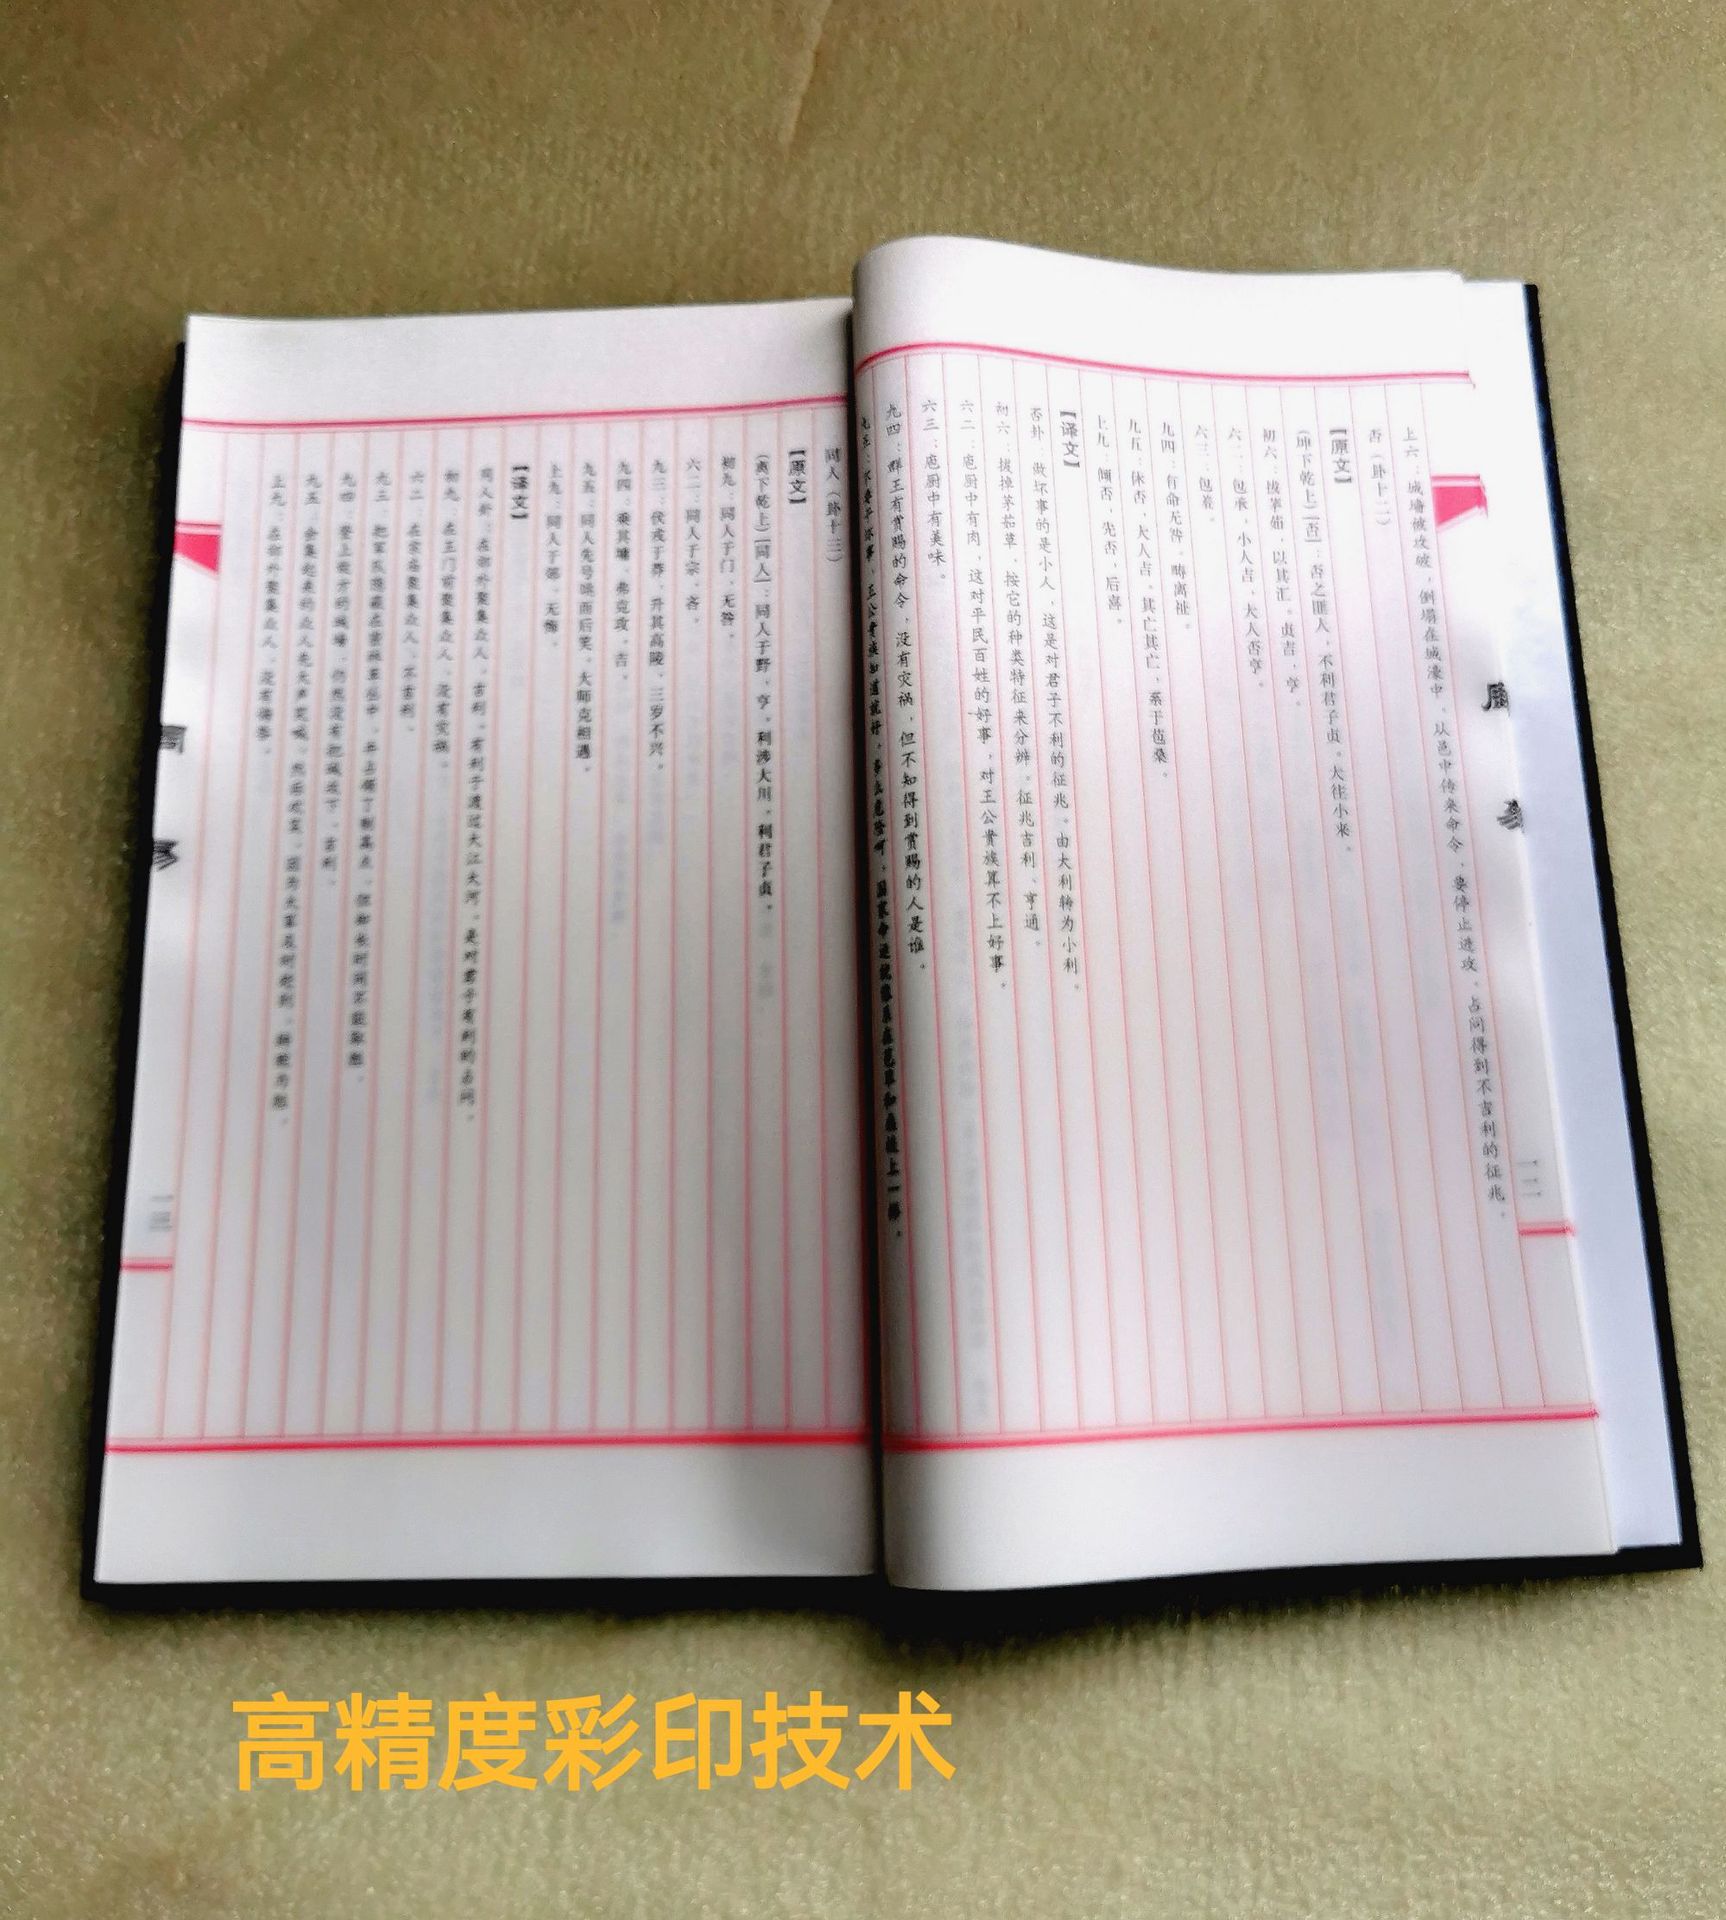 上六：城墙被攻破，倒塌在城濠中，从邑中传来命令，要停止进攻，占问得到不吉利的征兆。
否（卦十二）
【原文】
（坤下乾上）［否］：否之匪人，不利君子贞。大往小来。
初六：拔茅茹，以其汇。贞吉，亨。
六二：包承，小人吉，大人否亨。
六三：包羞。
九四：有命无咎，畴离祉。
九五：休否，大人吉。其亡其亡，系于苞桑。
上九：倾否，先否，后喜。
【译文】
否卦：做坏事的是小人，这是对君子不利的征兆。由大利转为小利。
初六：拔掉茅茹草，按它的种类特征来分辨。征兆吉利、亨通。
六二：庖厨中有肉，这对平民百姓的好事，对王公贵族算不上好事。
六三：庖厨中有美味。
九四：群王有赏赐的命令，没有灾祸，但不知得到赏赐的人是谁。
九五：不要干坏事，王公贵族知道就好。
周易
一二
同人（卦十三）
【原文】
（离下乾上）［同人］：同人于野，亨。利涉大川，利君子贞。
初九：同人于门，无咎。
六二：同人于宗，吝。
九三：伏戎于莽，升其高陵，三岁不兴。
九四：乘其墉，弗克攻，吉。
九五：同人先号咷而后笑，大师克相遇。
上九：同人于郊，无悔。
【译文】
同人卦：在郊外聚集众人，吉利。有利于渡过大江大河，是对君子有利的占问。
初九：在王门前聚集众人，没有灾祸。
六二：在宗庙聚集众人，不吉利。
九三：把军队隐蔽在
九四：登上敌方的城墙，仍然没有把城攻下，吉利。
九五：
上九：在郊外聚集众人，没有悔吝。
周易
一三
高精度彩印技术